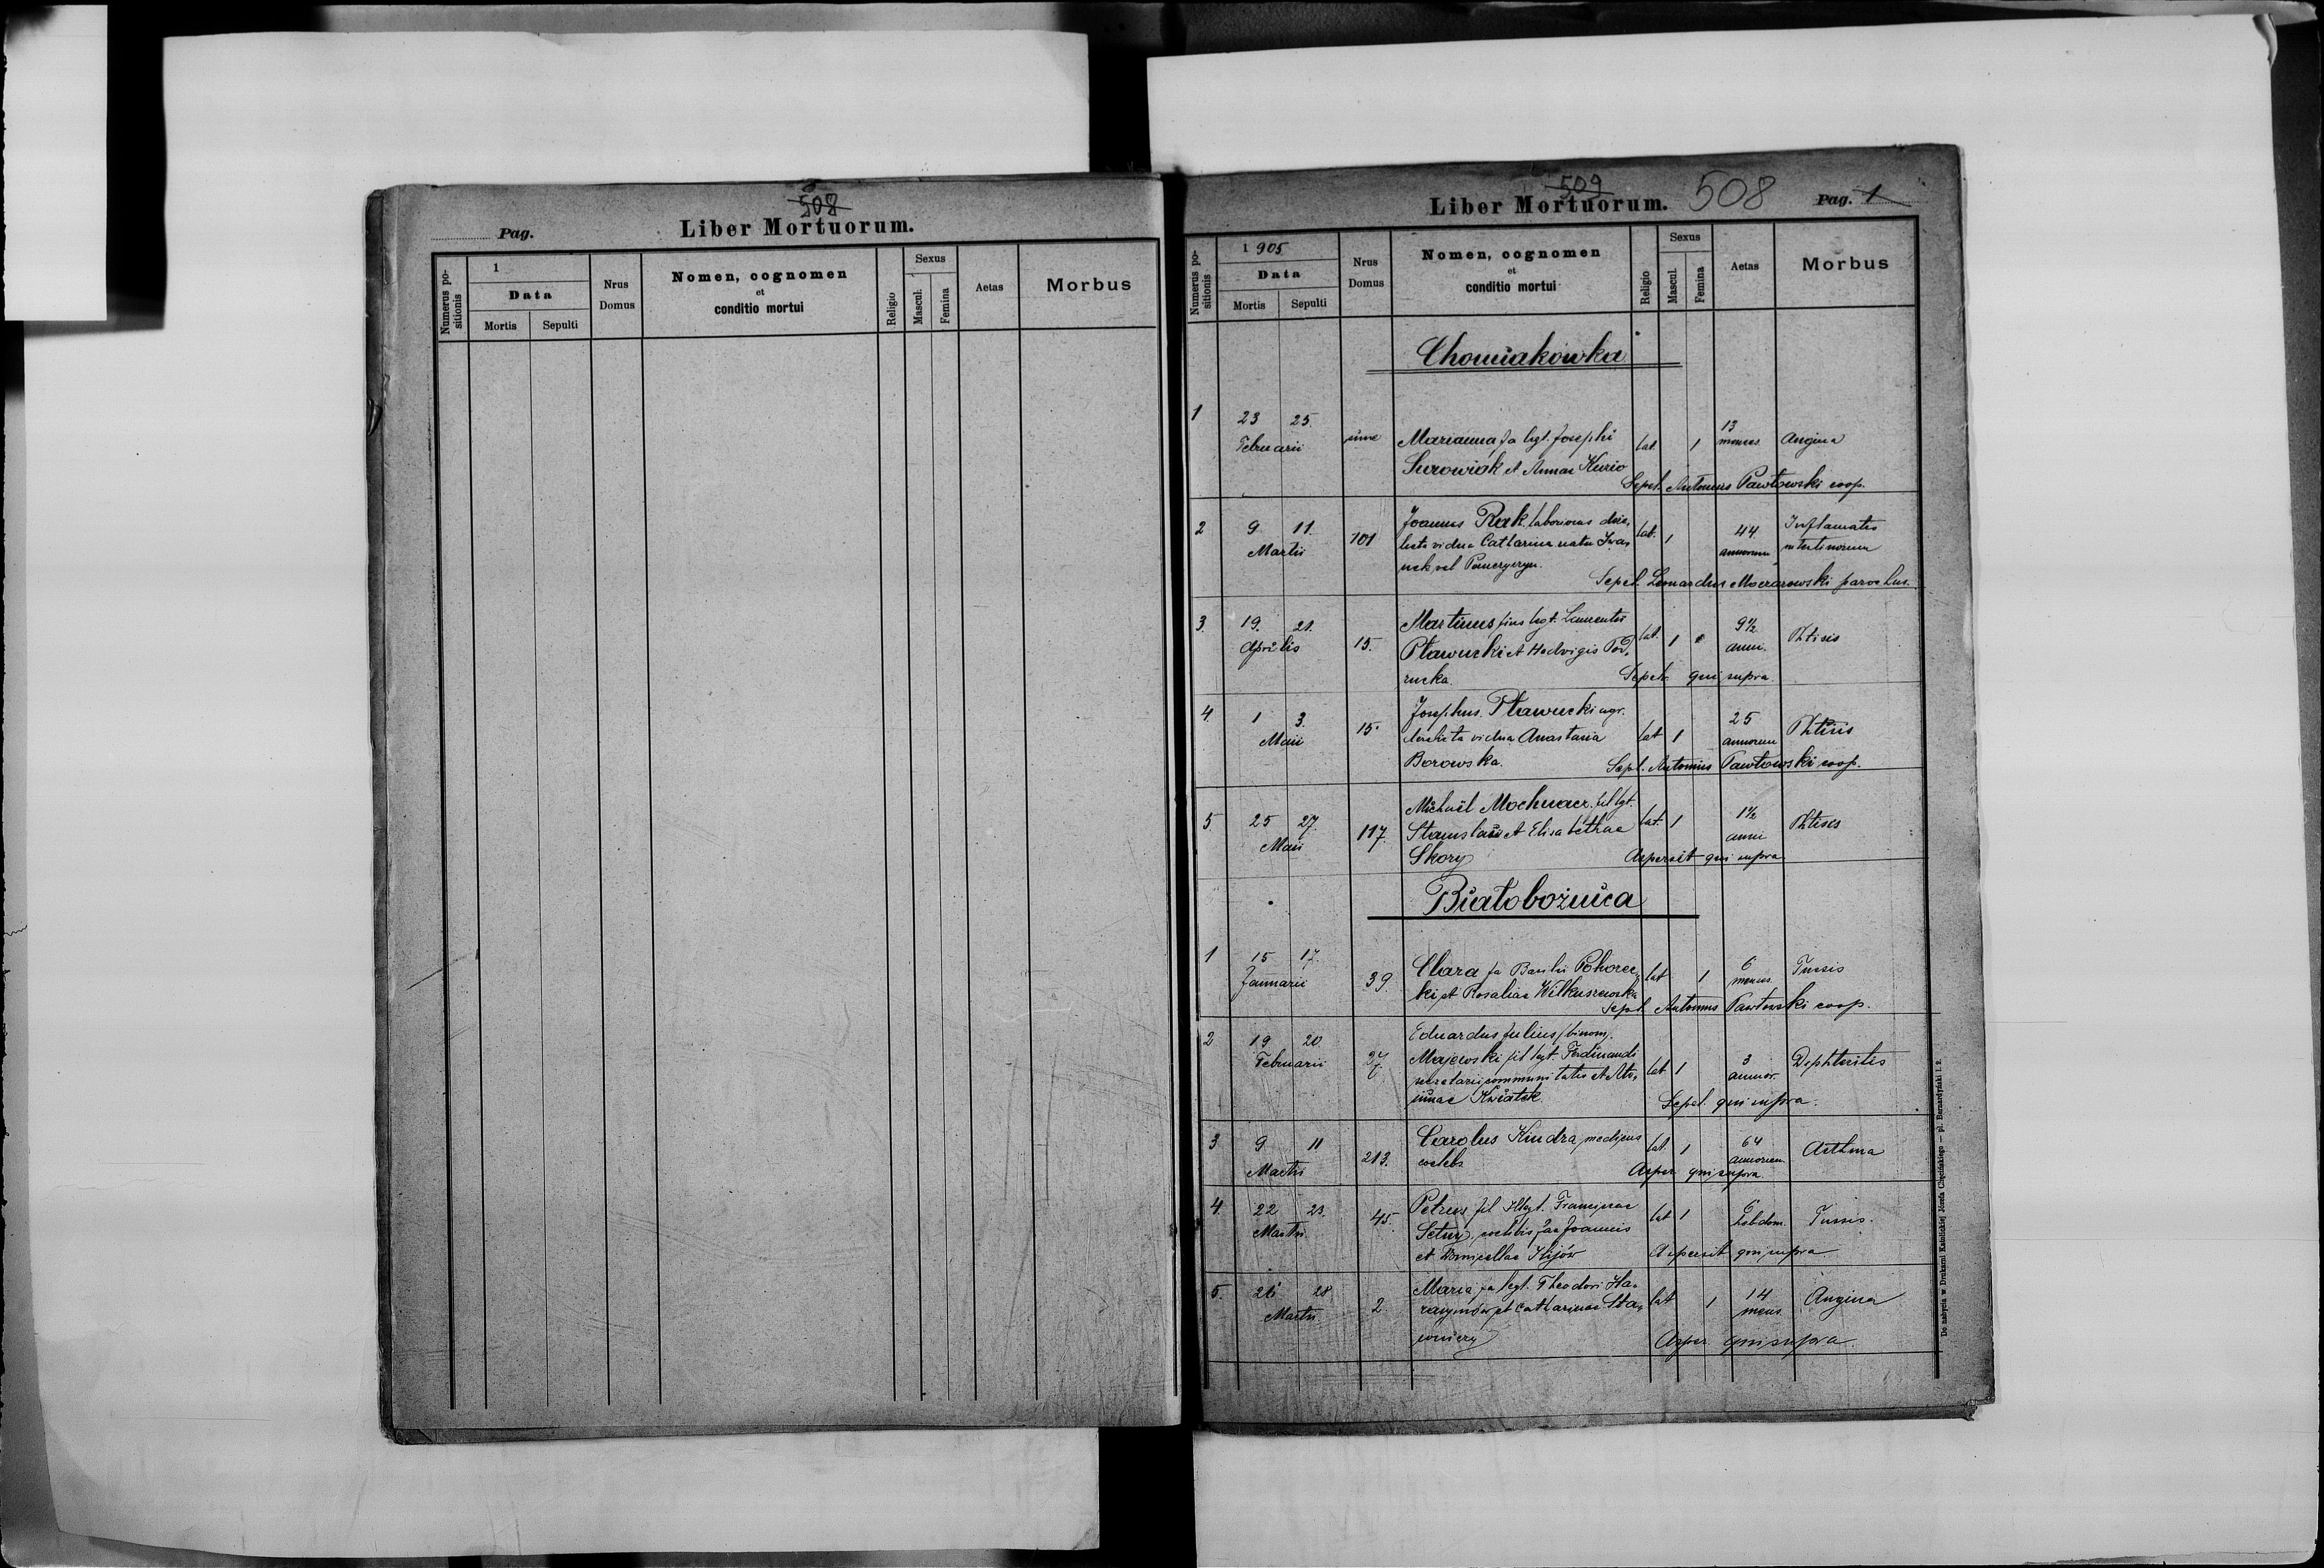 508
Pag.
Liber Mortuorum.
Numerus positionis
1
Data
Mortis Sepulti
Nrus Domus
Nomen, cognomen
et
conditio mortui
Religio
Sexus
Mascul. Femina
Aetas
Morbus
509
Liber Mortuorum. 508 Pag. 1
Numerus positionis
1 905
Data
Mortis Sepulti
Nrus Domus
Nomen, cognomen
et
conditio mortui
Religio
Sexus
Mascul. Femina
Aetas
Morbus
Chomiakowka
1 23 25. Februarii
Marianna fa legt. Josephi lat. 1 13 menses Angina
Surowiak et Annae Kurio
Sepel. Antonius Pawłowski coop.
2 9 11. Martii 101
Joannes Rak laboriosus dere,
licta vidua Catharina nata Iwa, lat. 1 44 annorum Inflamatio intestinorum
nek vel
Sepel Leonardus parochus.
3. 19. 21. Aprilis 15.
Martinus fius legt. Laurentii
Pławucki et Hedvigis Pod, lat. 1 9½ anni. Phtisis
rucka.
Sepel. qui supra
4. 1 3. Maii 15.
Josephus Pławucki agr.
derelicta vidua Anastasia lat 1 25 annorum Phtisis
Borowska.
Sepl. Antonius Pawłowski coop.
5. 25 27. Maii 117.
Michaël Mochnacz fil lgt.
Stanislai et Elisabethae lat. 1 1½ anni Phtisis
Skory
Aspersit qui supra
Białobożnica
1 15 17. Januarii 39.
Clara fa Basilii Pohorec, lat 1 6 menses Tussis
ki et Rosaliae Wilkuszewska
Sepl. Antonius Pawłowski coop.
2 19 20. Februarii 27
Eduardus Julius (binom)
Majewski fil legt. Ferdinandi
secretarii communitatis et Anto, lat 1 3 annor. Diphteritis
ninae Kwiatek.
Sepel. qui supra.
3 9 11 Martii 213.
Carolus Kindra, medicus lat. 1 64 annorum Asthma
coelebs
Asper qui supra.
4. 22 23. Martii 45.
Petrus fil illegt. Franciscae lat 1 6 hebdom. Tussis.
coelibis fae Joannis
et Kijów
Aspersit qui supra
5. 26 28 Martii 2
Maria fa legt. Theodori Ha,
et Catharinae Sta, lat 1 14 mens Angina
Asper qui supra.
Do nabycia w Drukarni Katolickiej Józefa Chęcińskiego — pl. Bernardyński l. 2.